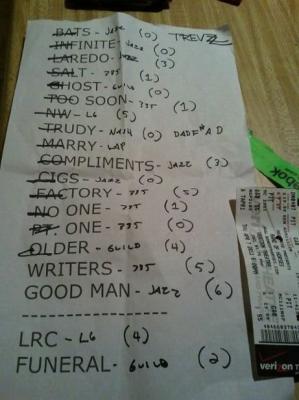 BATS - JAZZ (0) TREVZ
INFINITE - JAZZ (0)
LAREDO - JAZZ (3)
SALT - 335 (1)
GHOST - GUILD (0)
TOO SOON - 335 (1)
NW - L6 (5)
TRUDY - NASH (0) DADF#AD
MARRY - LAP
COMPLIMENTS - JAZZ (3)
CIGS - JAZZ (0)
FACTORY - 335 (5)
NO ONE - 335 (1)
ONE - 335 (0)
OLDER - GUILD (4)
WRITERS - 335 (5)
GOOD MAN - JAZZ (6)
------------------
LRC - L6 (4)
FUNERAL - GUILD (2)
verizon